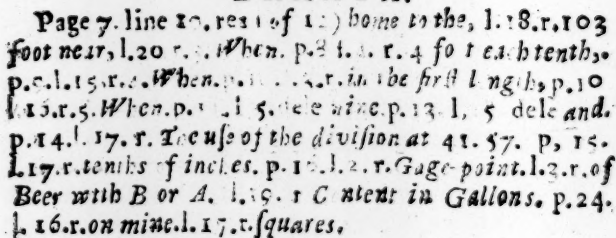 Page 7. line of home to the, l.18.r.103
foot near, l.20 r. When. p.8 l. r. 4 for each tenth,
p. l.15.r. When. p. r. in the first length, p.10
l.16.r.5. When. p. l 5. dele nine. p.13. l, 5 dele and.
p.14. l.17. r. The use of the division at 41. 57. p, 15.
l.17.r. tenths of inches. p. l.2. r. Gage-point. l.3.r. of
Beer with B or A. l. r Content in Gallons. p.24.
l. 16.r. on mine. l. 17.r. squares.